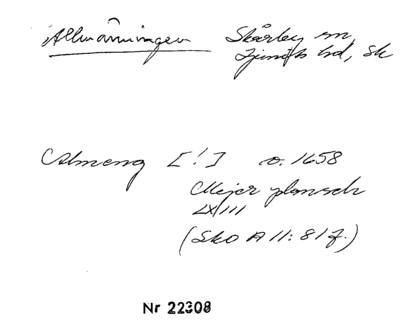 Allmänningen Skårby sn,
Ljunits hd, Sk
Almeng [!] o. 1658
Mejer plansch
LXIII
(Sko A 11: 81f.)
Nr 22308